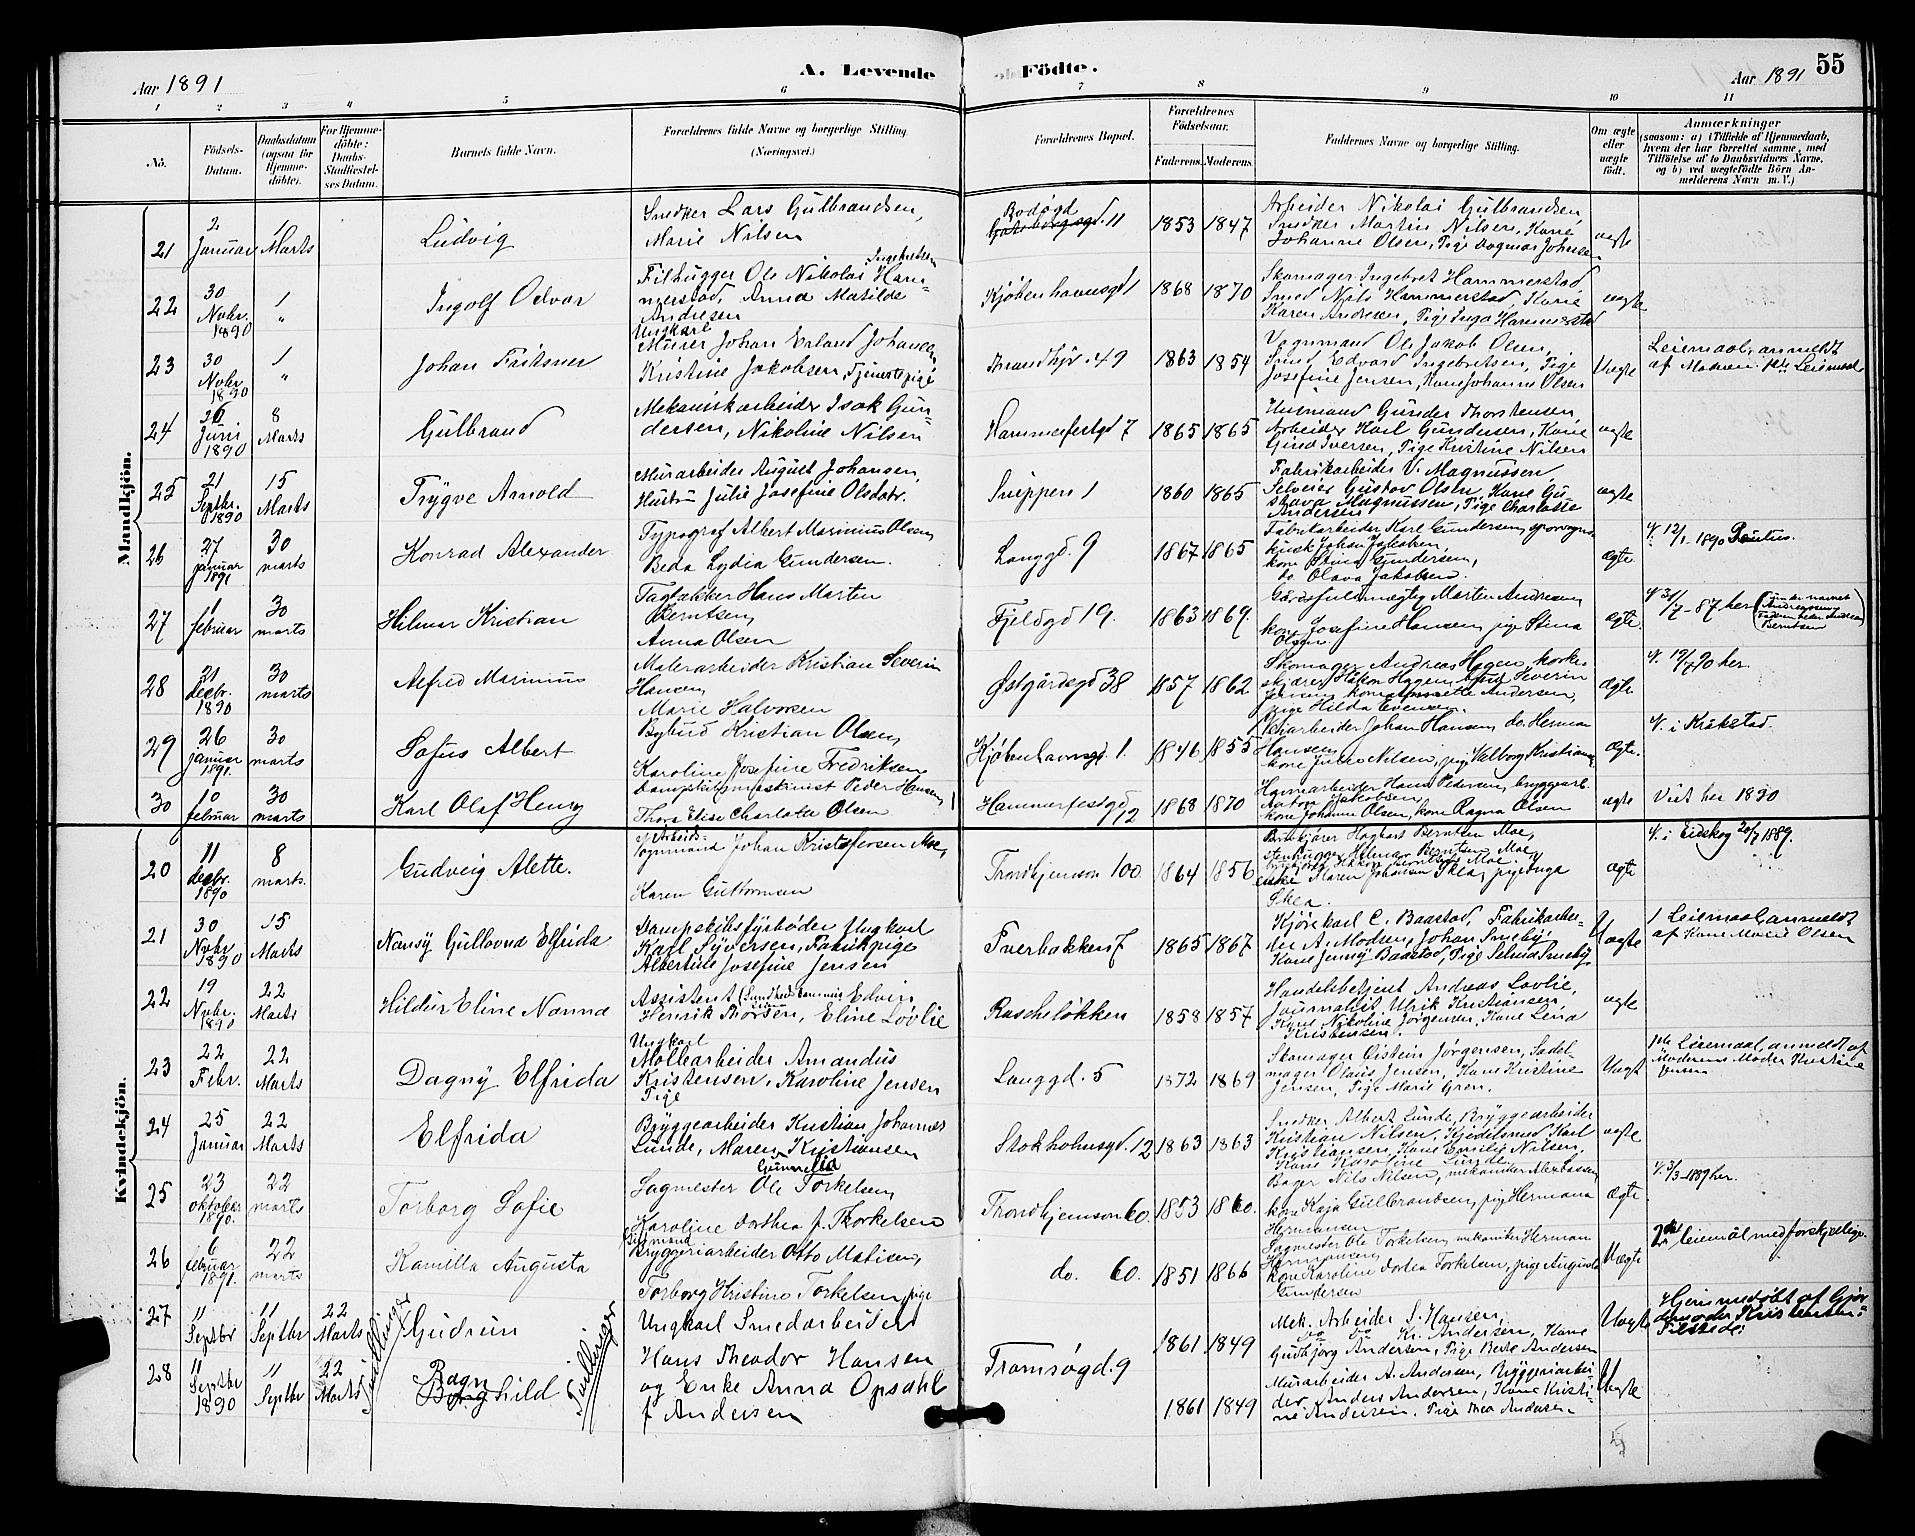 Aar 1891
A. Levende
Födte.
Aar 1891
55
1 2 3 4 5 6 7 8 9 10 11
No. Födsels-Datum. Daabsdatum (ogsaa for Hjemmedöbte). For Hjemmedöbte: Daabs-Stadfæstelses Datum. Barnets fulde Navn. Forældrenes fulde Navne og borgerlige Stilling. (Næringsvei.) Forældrenes Bopæl. Forældrenes Födselsaar. Faderens. Moderens. Faddernes Navne og borgerlige Stilling. Om ægte eller uægte født.
Anmærkninger
(saasom: a) i Tilfælde af Hjemmedaab,
hvem der har forrettet samme, med
Tilföielse af to Daabsvidners Navne,
og b) ved uægtefödte Börn Anmelderens Navn m. V.)
Mandkjön.
21 2 Januar 1 Marts Ludvig
Snedker Lars Gulbrandsen,
Marie Nilsen
Bodøgd 11 1853 1847
Arbeider Nikolai Gulbrandsen
Snedker Martin Nilsen, Kone
Johanne Olsen, Pige Dagmar Johnsen
ægte
22 30 Novbr. 1890 1 " Ingolf Odvar
Filhugger Ole Nikolai Ingebretsen Hammerstad, Anna Matilde
Andresen
Kjøbenhavnsgd 1 1868 1870
Skomager Ingebret Hammerstad
Smed Nils Hammerstad, Kone
Karen Andresen, Pige Inga Hammerstad
ægte
23 30 Novbr. 1890 1 " Johan Fritsner
Ungkarl
Murer Johan Erland Johansen
Kristine Jakobsen, Tjenestepige
Trondhjv. 49 1863 1854
Vognmand Ole Jakob Olsen,
Smed Edvard Ingebretsen, Pige
Josefine Jensen, Kone Johanne Olsen
Uægte
Leiermaal, anmeldt
af Moderen. 1ste Leiermaal
24 26 Juni 1890 8 Marts Gulbrand
Mekaniskarbeider Isak Gundersen, Nikoline Nilsen
Hammerfestgd 7 1865 1865
Husmand Gunder Thorstensen,
Arbeider Karl Gundersen, Kone
Gina Iversen, Pige Kristine Nilsen
ægte
25 21 Septbr. 1890 15 Marts Trygve Arnold
Murarbeider August Johansen,
Hustru Julie Josefine Olsdatr.
Snippen 1 1860 1865
Fabrikarbeider V. Magnussen
Selveier Gustav Olsen, Kone Gustava Magnussen, Pige Charlotte
Andersen
ægte
26 27 januar 1891 30 marts Konrad Alexander
Typograf Albert Marinius Olsen,
Beda Lydia Gundersen.
Langgd. 9 1867 1865
Fabrikarbeider Karl Gundersen, sporvogns
kusk Johan Jakobsen,
kone Stina Gundersen,
do. Olava Jakobsen.
ægte
V. 12/1-1890 Paulus.
27 1 februar 30 marts Hilmar Kristian
Tagtækker Hans Martin
Berntsen,
Anna Olsen
Fjeldgd 19. 1863 1869.
Gaardsfuldmægtig Martin Andresen,
kone Josefine Hansen, pige Stina
Olsen
ægte.
V. 31/7-87 her
28 21 decbr. 1890 30 marts Alfred Marinius
Malerarbeider Kristian Severin
Hansen
Marie Halvorsen
Østgårdsgd 38 1857 1862
Skomager Andreas Hagen, korkeskjærer Håkon Hagen, Severin
Jensen, kone Annette Andersen,
pige Hilda Evensen.
ægte
V. 12/7 90 her.
29 26 januar 1891. 30 marts Sofus Albert
Bybud Kristian Olsen,
Karoline Josefine Fredriksen
Kjøbenhavnsgd. 1. 1846 1855
Veiarbeider Johan Hansen, do. Herman
Hansen,
kone Julie Nilsen, pige Valborg Kristiansen
ægte.
V. i Kråkstad.
30 10 februar 30 marts Karl Olaf Henry
Dampskibsmaskinist Peder Hansen,
Thora Elise Charlotte Olsen
Hammerfestgd 12 1868 1870
Havnearbeider Hans Pedersen, bryggearb.
Anton Jakobsen,
kone Johanne Olsen, kone Ragna Olsen
ægte
Viet her 1890
Kvindekjön.
20 11 decbr. 1890 8 marts. Gudveig Alette.
Arbeids-
Vognmand Johan Kristofersen Moe,
Karen Guttormsen
Trondhjemsvn 100 1864 1856
Hagbart Berntsen Moe,
stenhugger Hilmar Berntsen Moe,
Karen Johansen Skea, pige Inga
Skea.
ægte
V. i Eidskog 20/7 1889.
21 30 Novbr. 1890 15 Marts Nansy Gullovna Elfrida
Dampskibsfyrbøder Ungkarl
Karl Syversen, Fabrikpige
Albertine Josefine Jensen
Tverbakken 7 1865 1867
Kjørekarl C. Baastad, Fabrikarbeider A. Madsen, Johan Smeby,
Kone Jenny Baastad, Pige Selma Smeby
Uægte
1 Leiermaal anmeldt
af Kone Marie Olsen
22 19 Novbr. 1890 22 Marts Hildur Eline Nanna
Assistent (Sundhedskommis.) Edvin
Henrik Thorsen, Eline Løvlie
Rascheløkken 1858 1857
Handelsbetjent Andreas Løvlie,
Journalist Ulrik Kristiansen,
Kone Nikoline Jørgensen, Kone Lena
Kristensen.
ægte
23 22 Febr. 22 Marts Dagny Elfrida
Ungkarl
Møllearbeider Amandus
Kristensen, Karoline Jensen
Pige
Langgd. 5 1872 1869
Skomager Oistein Jørgensen, Sadelmager Olaus Jensen, Kone Kristine
Jensen, Pige Marie Gren.
Uægt
1ste Leiermaal, anmeldt af
Moderens Moder Kristine
Jensen
24 25 Januar 22 Marts Elfrida
Bryggearbeider Kristian Johannes
Lunde, Maren Kristiansen
Stokholmsgd. 12 1863 1863
Snedker Albert Lunde, Bryggearbeider
Kristian Nilsen, Kjedelsmed Karl
Kristiansen, Kone Emilie Nilsen,
Kone Karoline Lunde
ægte
25 23 oktober 1890. 22 marts Torborg Sofie
Sagmester Ole Torkelsen,
Karoline Dorthea f. Thorkelsen
Trondhjemsvn 60. 1853 1860.
Bager Nils Nilsen, mekaniker Alex Larsen,
kone Kaja Gulbrandsen, pige Hermana
Hermansen
ægte
V. 3/3-1889 her.
26 6 februar 1891. 22 marts Kamilla Augusta
Bryggeriarbeider Otto Matisen,
Torborg Kristine Torkelsen, pige
do. 60. 1851 1866
Sagmester Ole Torkelsen, mekaniker Herman
Hermansen,
kone Karoline Dortea Torkelsen, pige Augusta
Gundersen
Uægte
2det leiermål med forskjellige.
27 11 Septbr 11 Septbr 22 Marts Gudrun
Tvillinger Tvillinger
Ungkarl Smedarbeider
Tromsøgd. 9 1861 1849
Mek. Arbeider S. Hansen,
do do Kr. Andersen, Kone
Gudbjørg Andersen, Pige Berte Andersen
Uægte
Hjemmedøbt af Gjordemoder Kristensen
Tilstede:
28 11 Septbr 1890 11 Septbr 22 Marts Ragnhild
Hans Theodor Hansen
og Enke Anna Opsahl
f Andersen
1861 1849
Murarbeider A. Andersen, Bryggeriarbeider Anders Andersen, Kone Kristine Andersen, Pige Thea Andersen
Uægte
5